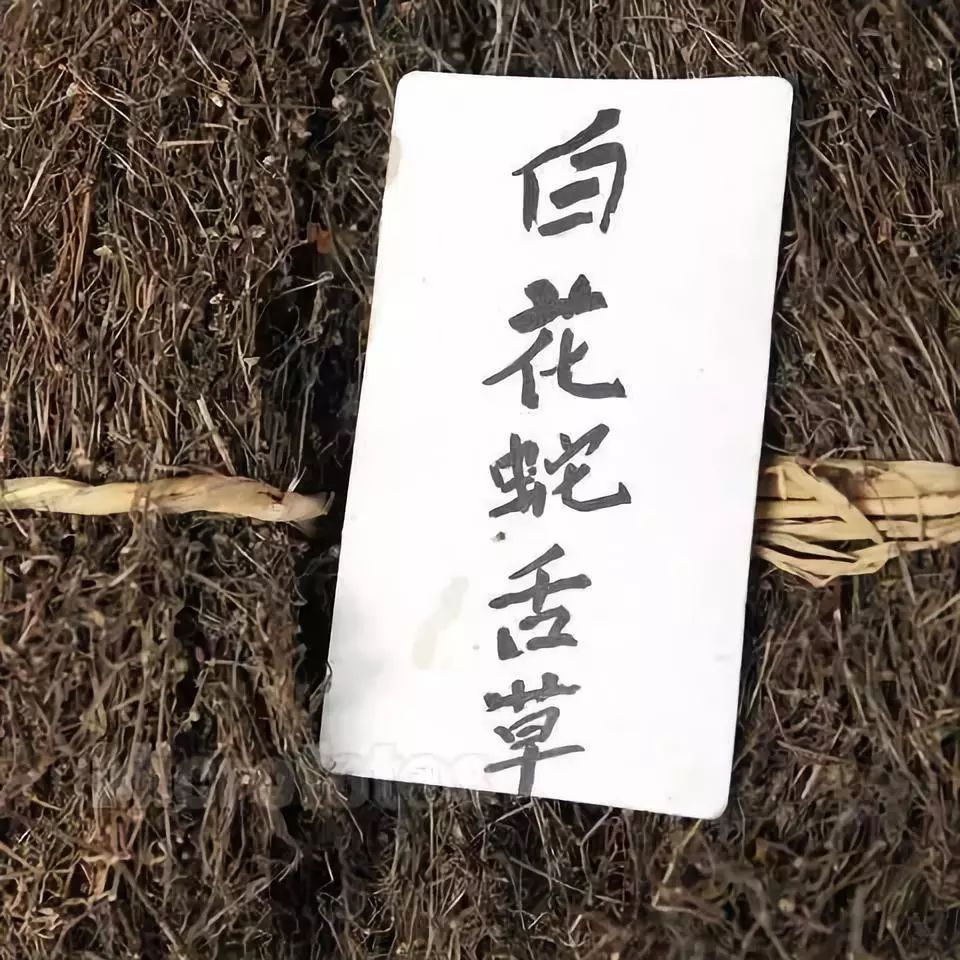 白花蛇舌草